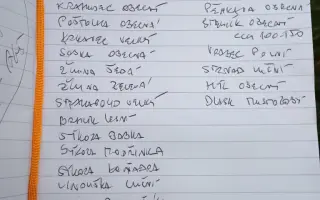 KRAHUJEC OBECNÝ
POŠTOLKA OBECNÁ
KRKAVEC VELKÝ
SOJKA OBECNÁ
ŽLUNA ŠEDÁ
ŽLUNA ZELENÁ
STRAKAPOUD VELKÝ
BRHLÍK LESNÍ
SÝKORA BABKA
SÝKORA MODŘINKA
SÝKORA KOŇADRA
LINDUŠKA LUČNÍ
PĚNKAVA OBECNÁ
STEHLÍK OBECNÝ
CCA 100-150
VRABEC POLNÍ
STRNAD LUČNÍ
HÝL OBECNÝ
DLASK TLUSTOZOBÝ